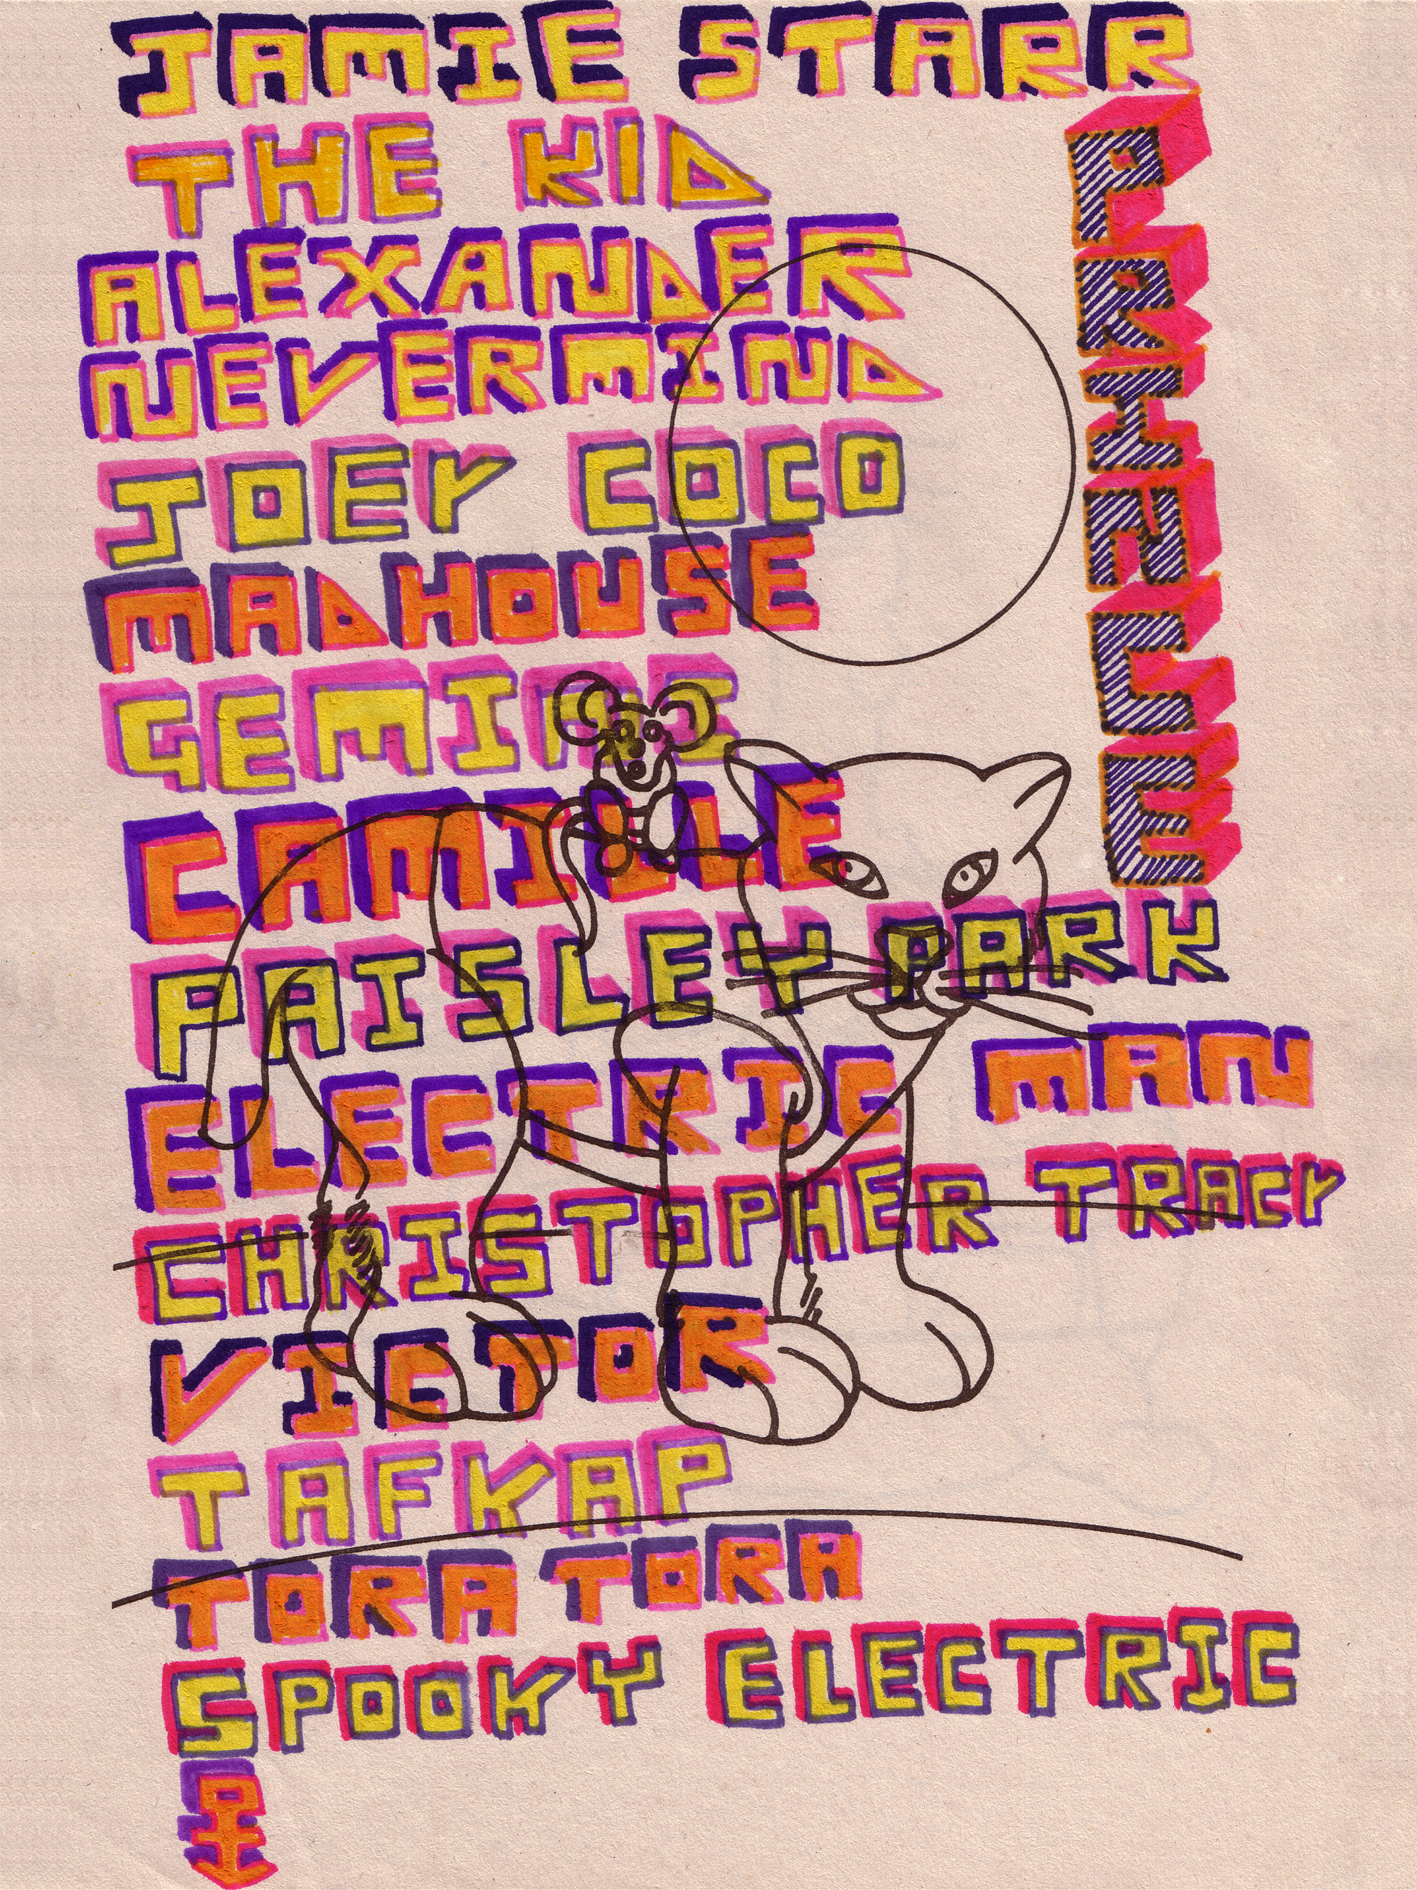 JAMIE STARR
THE KID
ALEXANDER
NEVERMIND
JOEY COCO
MADHOUSE
GEMINI
CAMILLE
PAISLEY PARK
ELECTRIC MAN
CHRISTOPHER TRACY
VICTOR
TAFKAP
TORA TORA
SPOOKY ELECTRIC